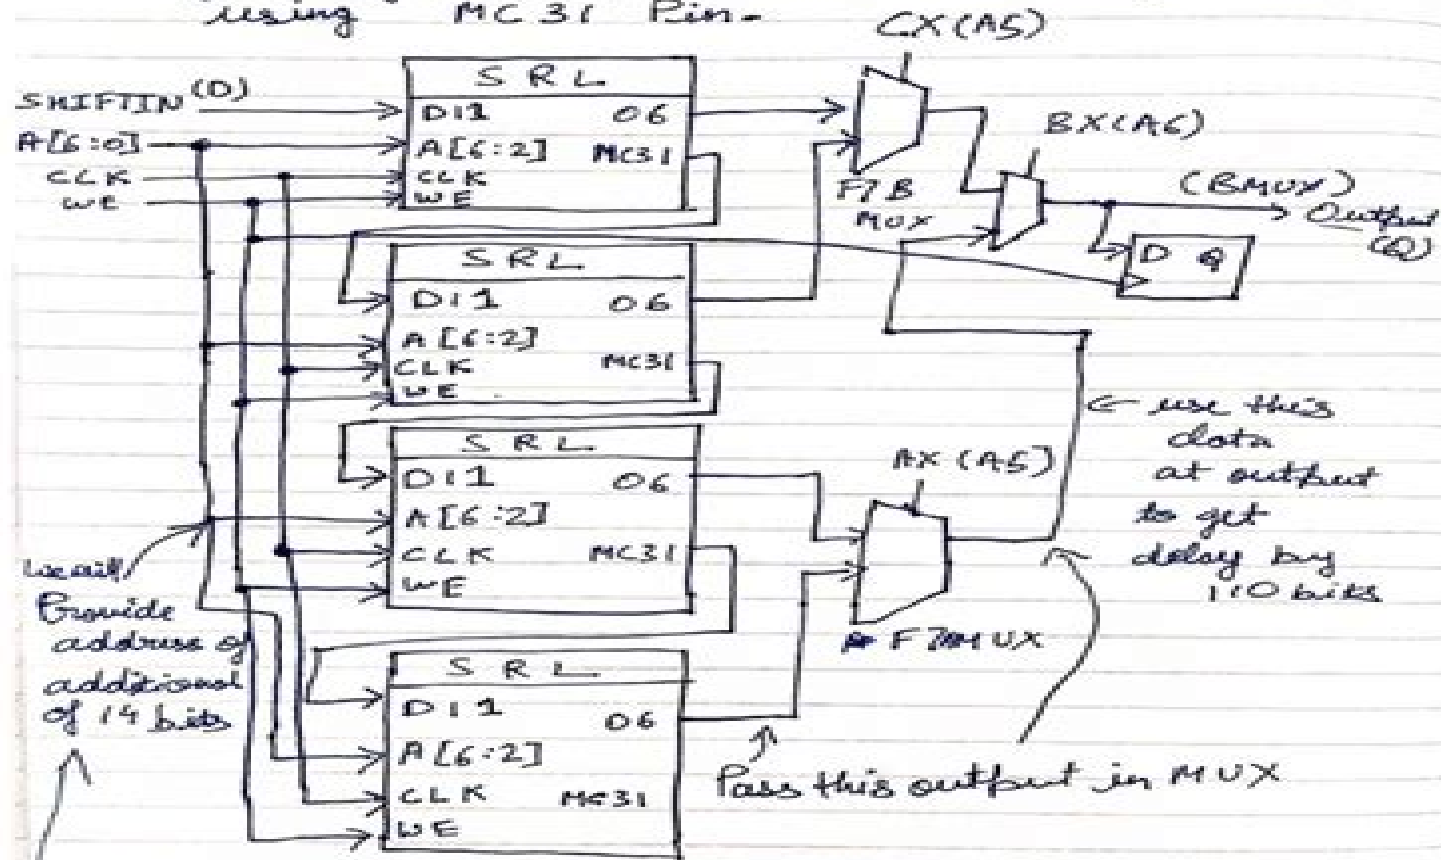 using MC31 Pin-
CX(A5)
SHIFTIN (D)
A[6:0]
CLK
WE
SRL
DI1 O6
A[6:2] MC31
CLK
WE
F7B
MUX
BX(A6)
(BMUX)
Output
(Q)
D Q
SRL
DI1 O6
A[6:2]
CLK MC31
WE
SRL
DI1 O6
A[6:2]
CLK MC31
WE
AX(A5)
F7AMUX
← use this
data
at output
to get
delay by
110 bits
we will
Provide
address of
additional
of 14 bits
SRL
DI1 O6
A[6:2]
CLK MC31
WE
Pass this output in MUX